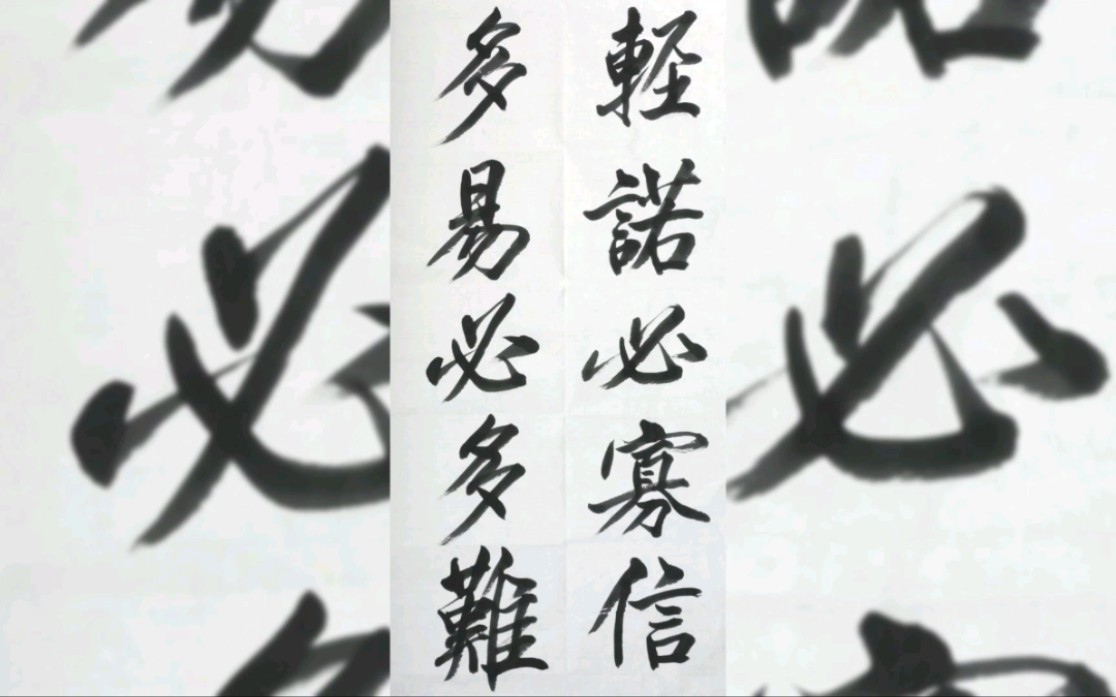 軽諾必寡信
多易必多難